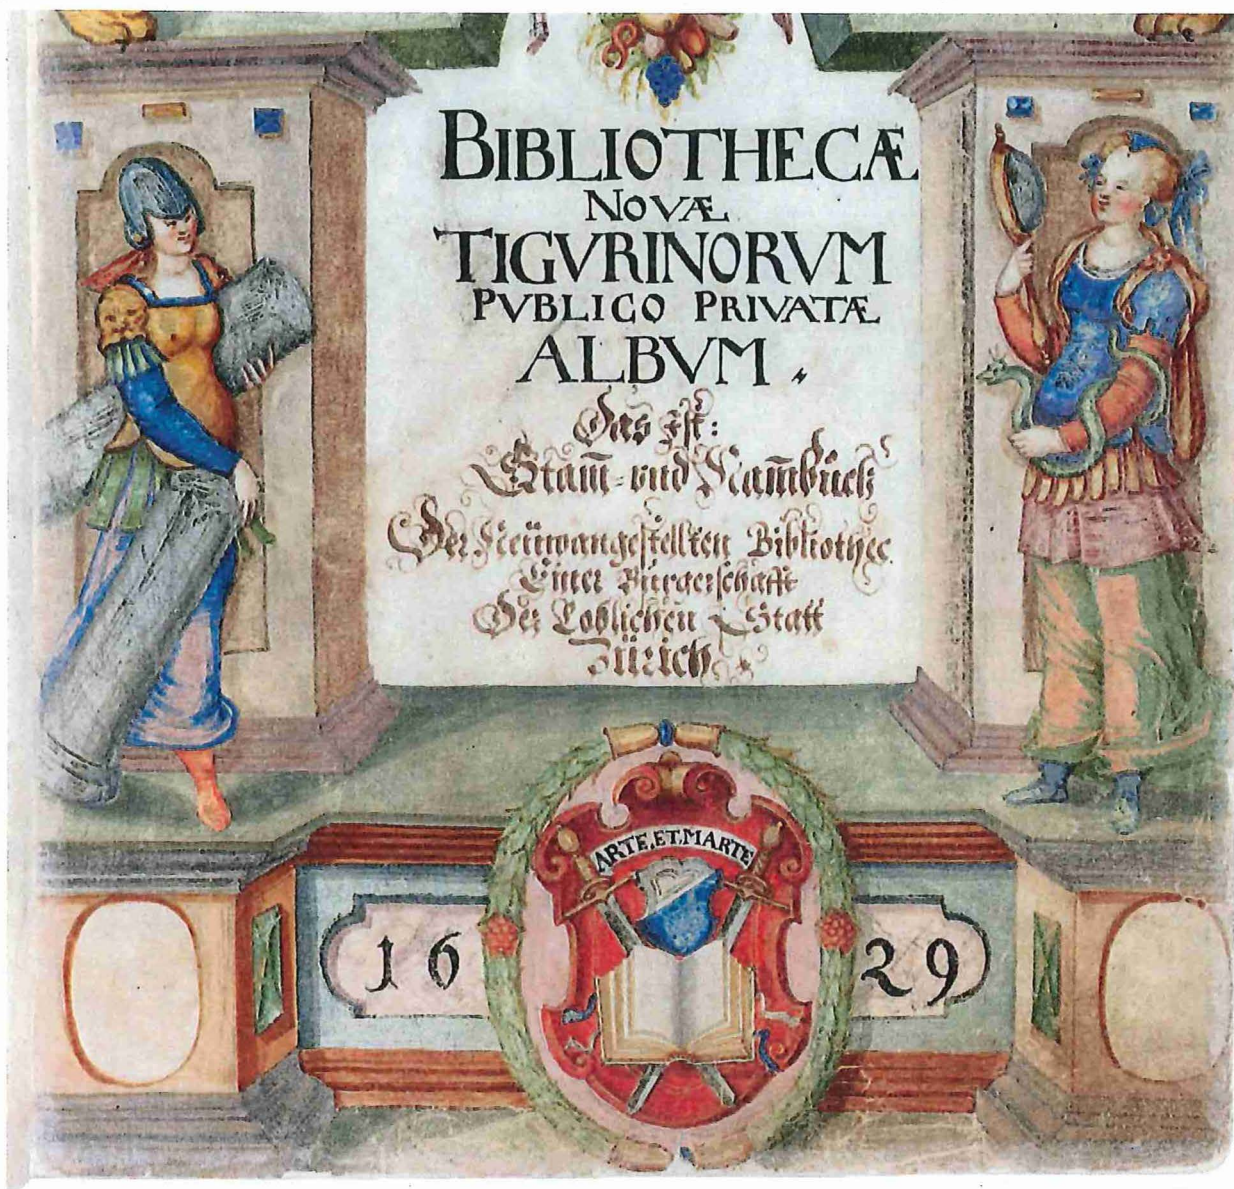 BIBLIOTHECÆ
NOVÆ
TIGVRINORVM
PVBLICO PRIVATÆ
ALBVM.
Das Ist:
Stam̄- vnd Nam̄buch
Der Neüwangestellten Bibliothec.
Einer Burgerschafft
Der Loblichen Statt
Zürich.
ARTE.ET.MARTE
16 29